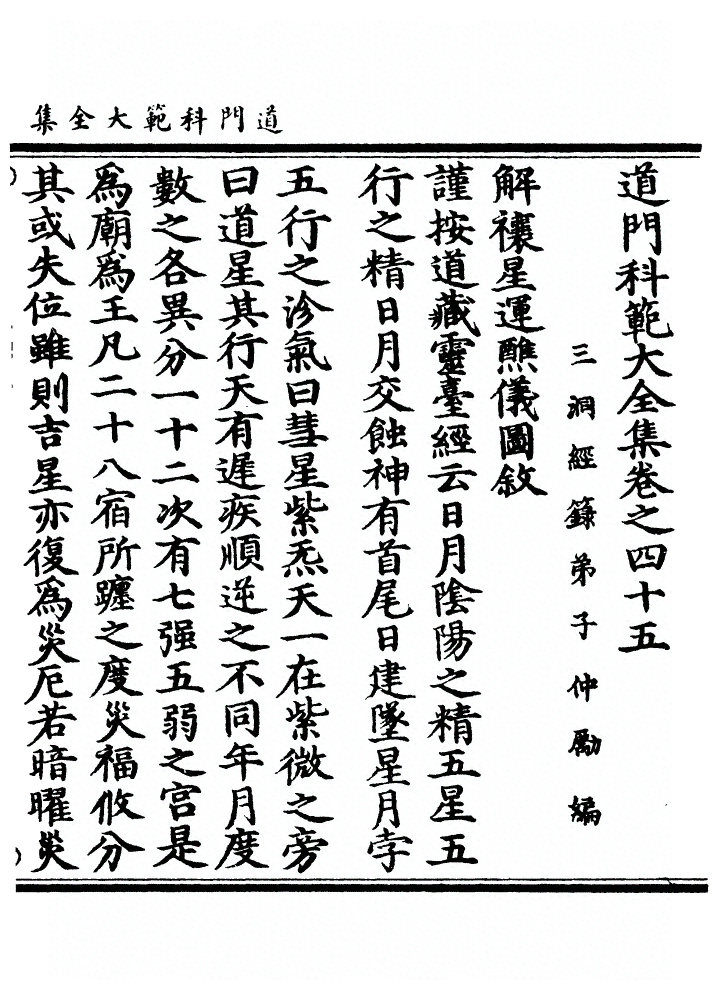 道門科範大全集
道門科範大全集卷之四十五
三洞經籙弟子仲勵編
解禳星運醮儀圖敘
謹按道藏靈臺經云日月陰陽之精五星五
行之精日月交蝕神有首尾日建墜星月孛
五行之沴氣曰彗星紫炁天一在紫微之旁
曰道星其行天有遲疾順逆之不同年月度
數之各異分一十二次有七强五弱之宮是
爲廟爲王凡二十八宿所躔之度災福攸分
其或失位雖則吉星亦復爲災厄若暗曜災